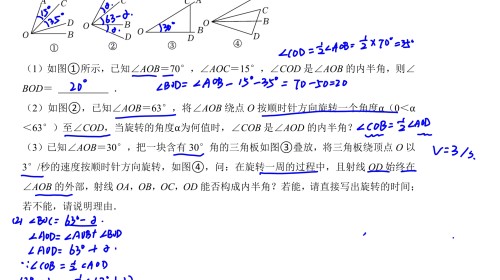 A C D B O 15° 35°
①
A C B D O α 63-α α
②
A B C D O 30°
③
A C B D O
④
∠COD=½∠AOB=½×70°=35°
（1）如图①所示，已知∠AOB=70°，∠AOC=15°，∠COD是∠AOB的内半角，则∠
BOD= 20° .
∠BOD=∠AOB-15°-35°=70-50=20
（2）如图②，已知∠AOB=63°，将∠AOB绕点O按顺时针方向旋转一个角度α（0<α
<63°）至∠COD，当旋转的角度α为何值时，∠COB是∠AOD的内半角？
∠COB=½∠AOD
（3）已知∠AOB=30°，把一块含有30°角的三角板如图③叠放，将三角板绕顶点O以
3°/秒的速度按顺时针方向旋转，如图④，问：在旋转一周的过程中，且射线OD始终在
V=3/s.
∠AOB的外部，射线OA，OB，OC，OD能否构成内半角？若能，请直接写出旋转的时间；
若不能，请说明理由.
(2) ∠BOC=63°-α.
∠AOD=∠AOB+∠BOD
∠AOD=63°+α
∵∠COB=½∠AOD